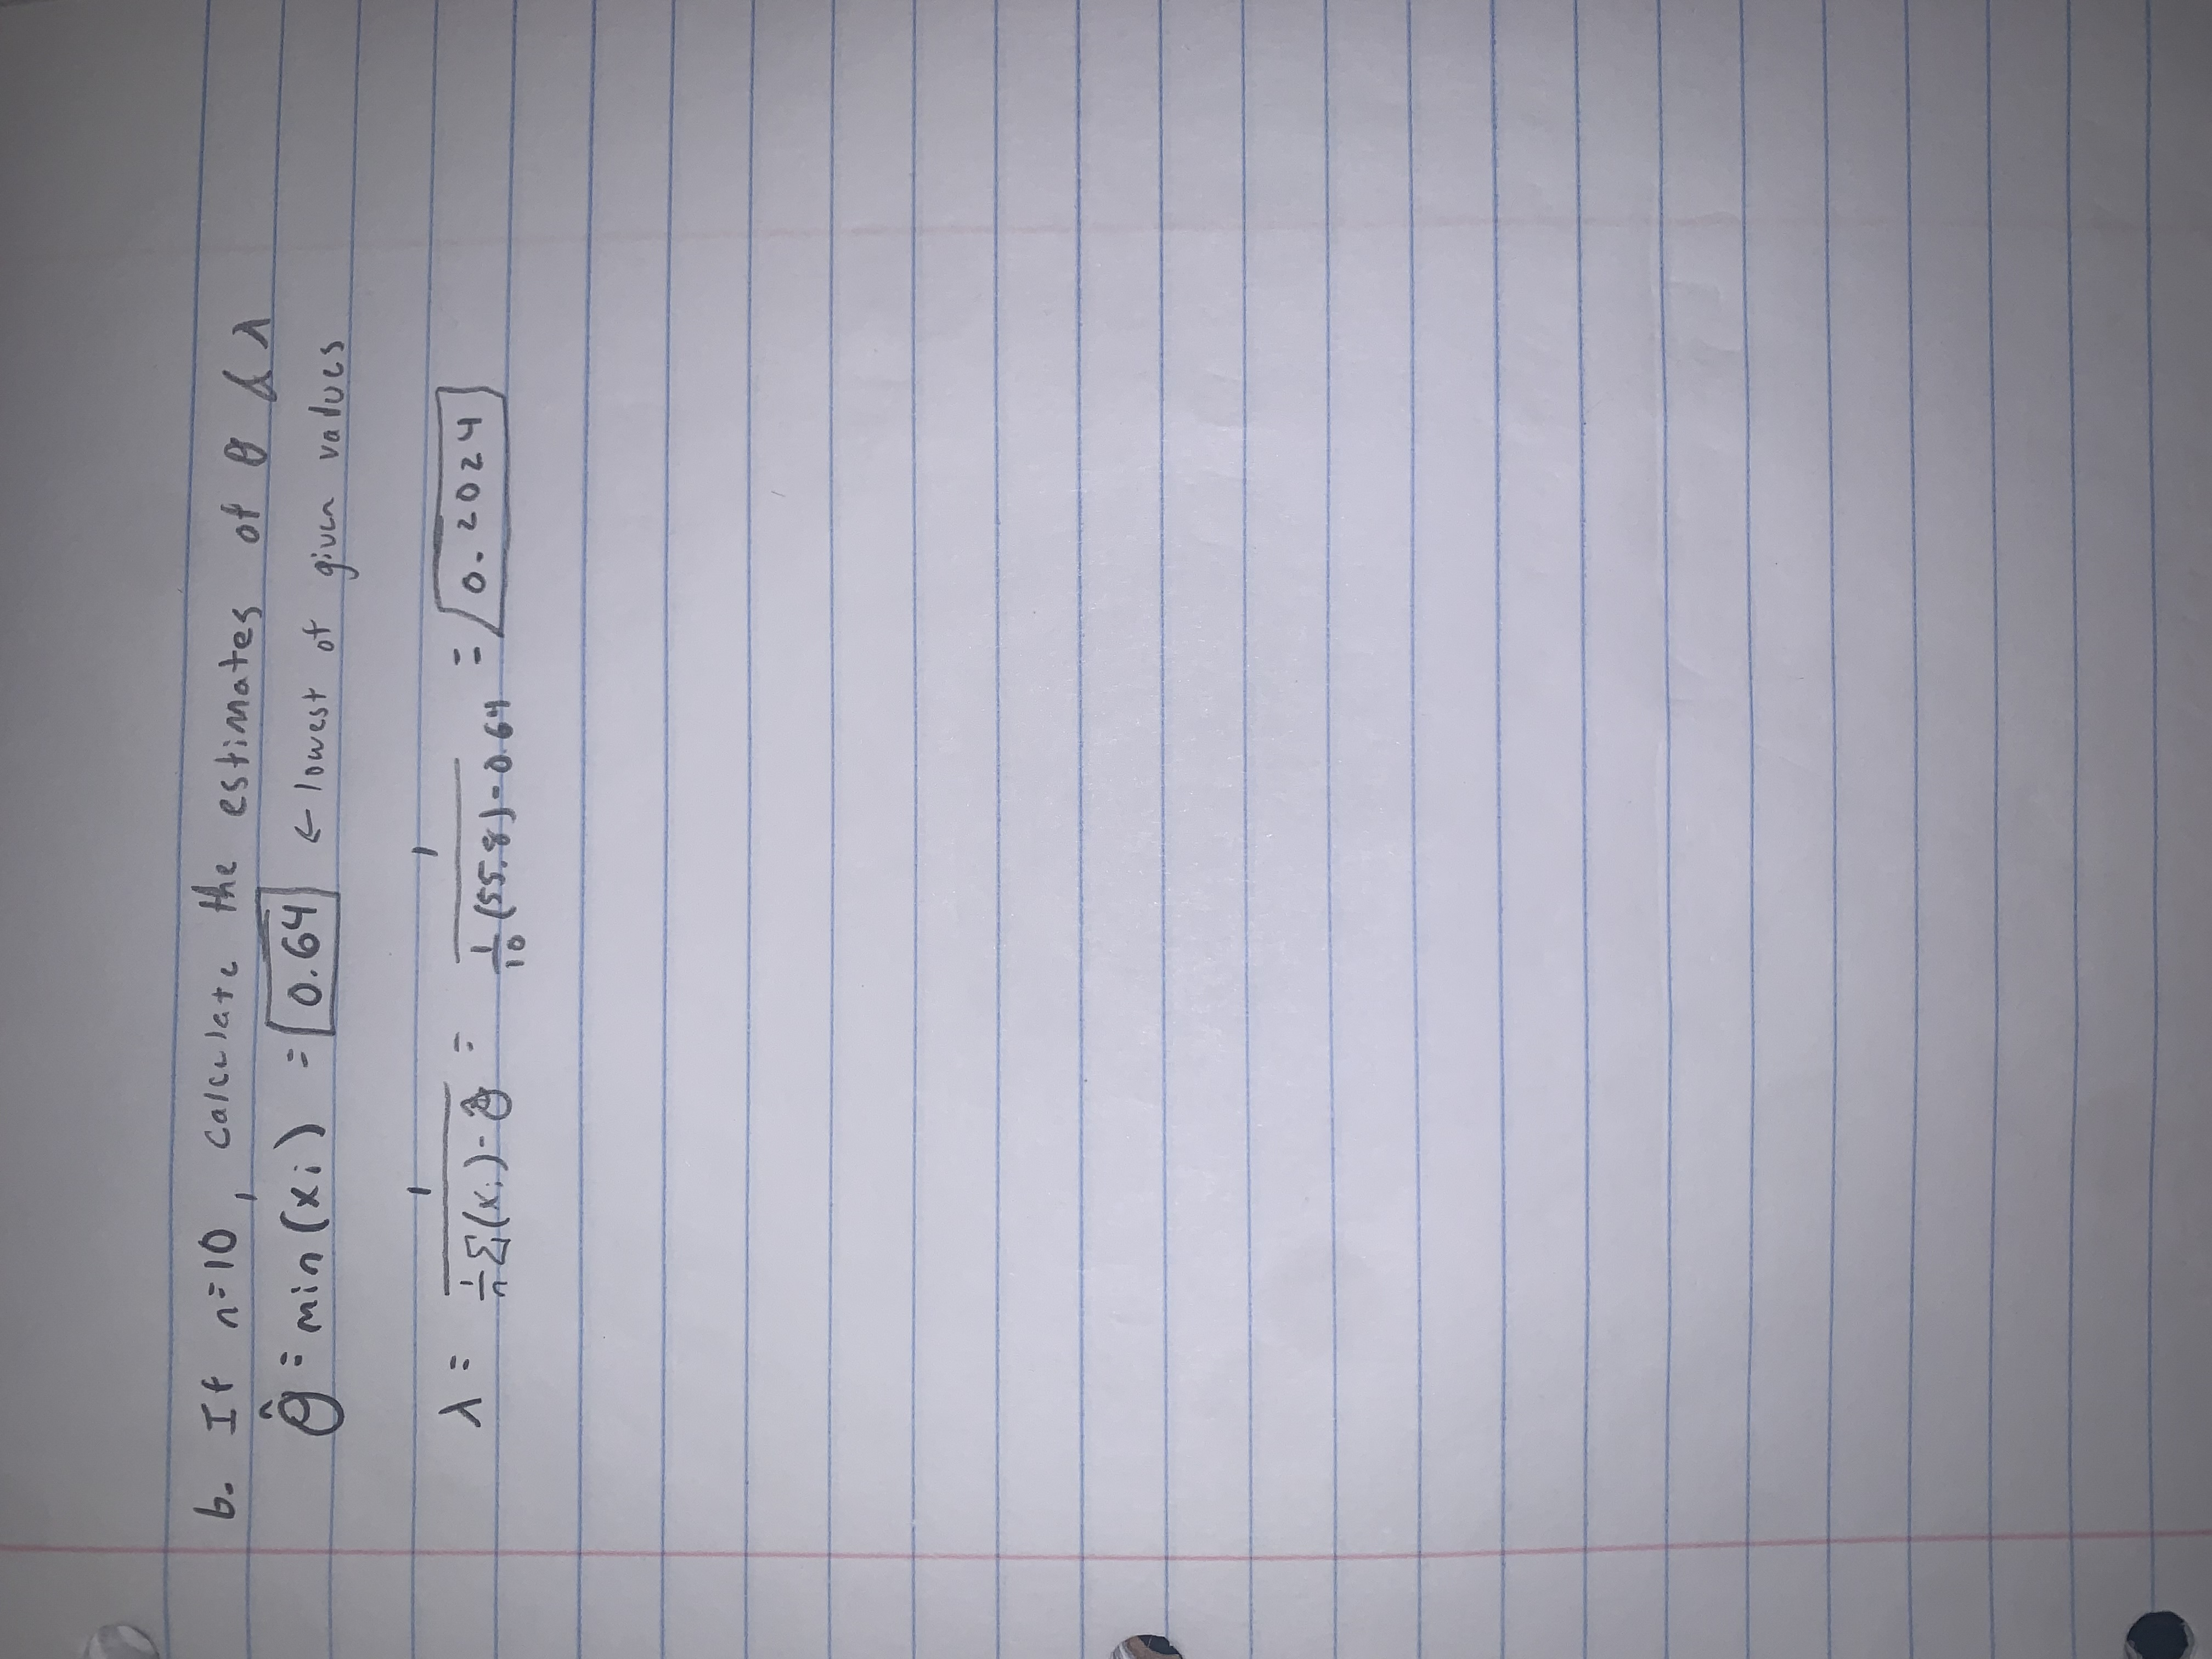 b. If n=10, calculate the estimates of θ & λ
θ̂ = min(xᵢ) = 0.64 ← lowest of given values
λ = 1 / (1/n Σ(xᵢ) - θ̂) = 1 / (1/10 (55.8) - 0.64) = 0.2024